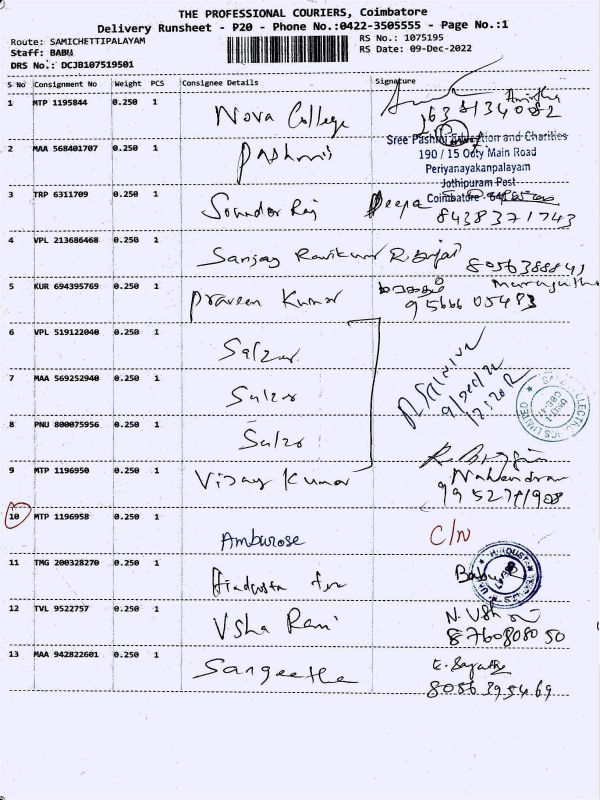 THE PROFESSIONAL COURIERS, Coimbatore
Delivery Runsheet - P20 - Phone No.:0422-3505555 - Page No.:1
Route: SAMICHETTIPALAYAM
RS No.: 1075195
Staff: BABU
RS Date: 09-Dec-2022
DRS No.: DCJB107519501
S No Consignment No Weight PCS Consignee Details Signature
1 MTP 1195844 0.250 1 Nova College
2 MAA 568401707 0.250 1 Pashmis
Sree Pashmi Education and Charities
190 / 15 Ooty Main Road
Periyanayakanpalayam
Jothipuram Post
Coimbatore
3 TRP 6311709 0.250 1 Soundar Raj Deepa
8438371743
4 VPL 213686468 0.250 1 Sanjay Ravikumar
5 KUR 694395769 0.250 1 Praveen Kumar
6 VPL 519122040 0.250 1 Salzar
7 MAA 569252940 0.250 1 Salzar
8 PNU 800075956 0.250 1 Salzo
9 MTP 1196950 0.250 1 Vijay Kumar
Nahendran
10 MTP 1196958 0.250 1 Amburose C/N
11 TMG 200328270 0.250 1 Babu
12 TVL 9522757 0.250 1 Usha Rani
8760808050
13 MAA 942822601 0.250 1 Sangeetha
8056395469